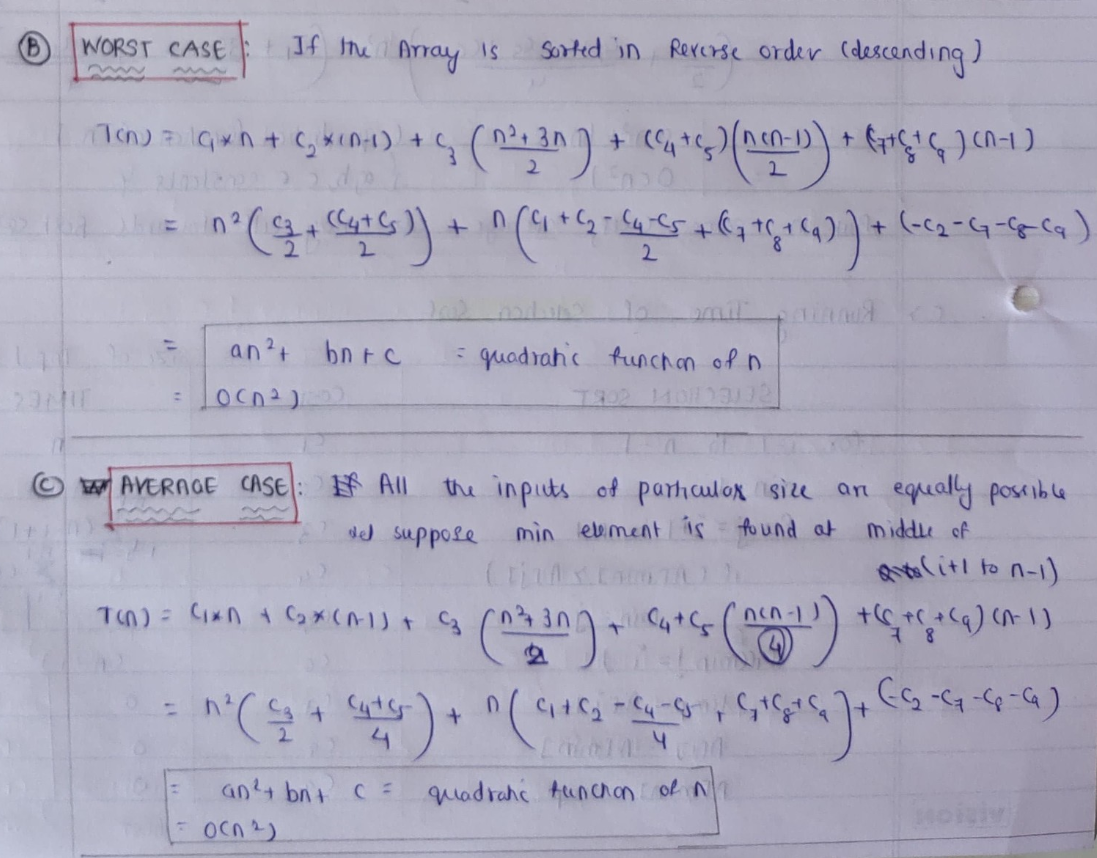 Ⓑ WORST CASE : If the Array is sorted in Reverse order (descending)
T(n) = C₁×n + C₂×(n-1) + C₃ ( (n²+3n)/2 ) + (C₄+C₅) ( n(n-1)/2 ) + (C₇+C₈+C₉) (n-1)
= n² ( C₃/2 + (C₄+C₅)/2 ) + n ( C₁+C₂ - (C₄-C₅)/2 + (C₇+C₈+C₉) ) + (-C₂-C₇-C₈-C₉)
= an²+ bn+c = quadratic function of n
= O(n²)
Ⓒ AVERAGE CASE : All the inputs of particular size are equally possible
suppose min element is found at middle of
(i+1 to n-1)
T(n) = C₁×n + C₂×(n-1) + C₃ ( (n²+3n)/2 ) + C₄+C₅ ( n(n-1)/④ ) + (C₇+C₈+C₉) (n-1)
= n² ( C₃/2 + (C₄+C₅)/4 ) + n ( C₁+C₂ - (C₄-C₅)/4 + C₇+C₈+C₉ ) + (-C₂-C₇-C₈-C₉)
= an²+bn+ c = quadratic function of n
= O(n²)